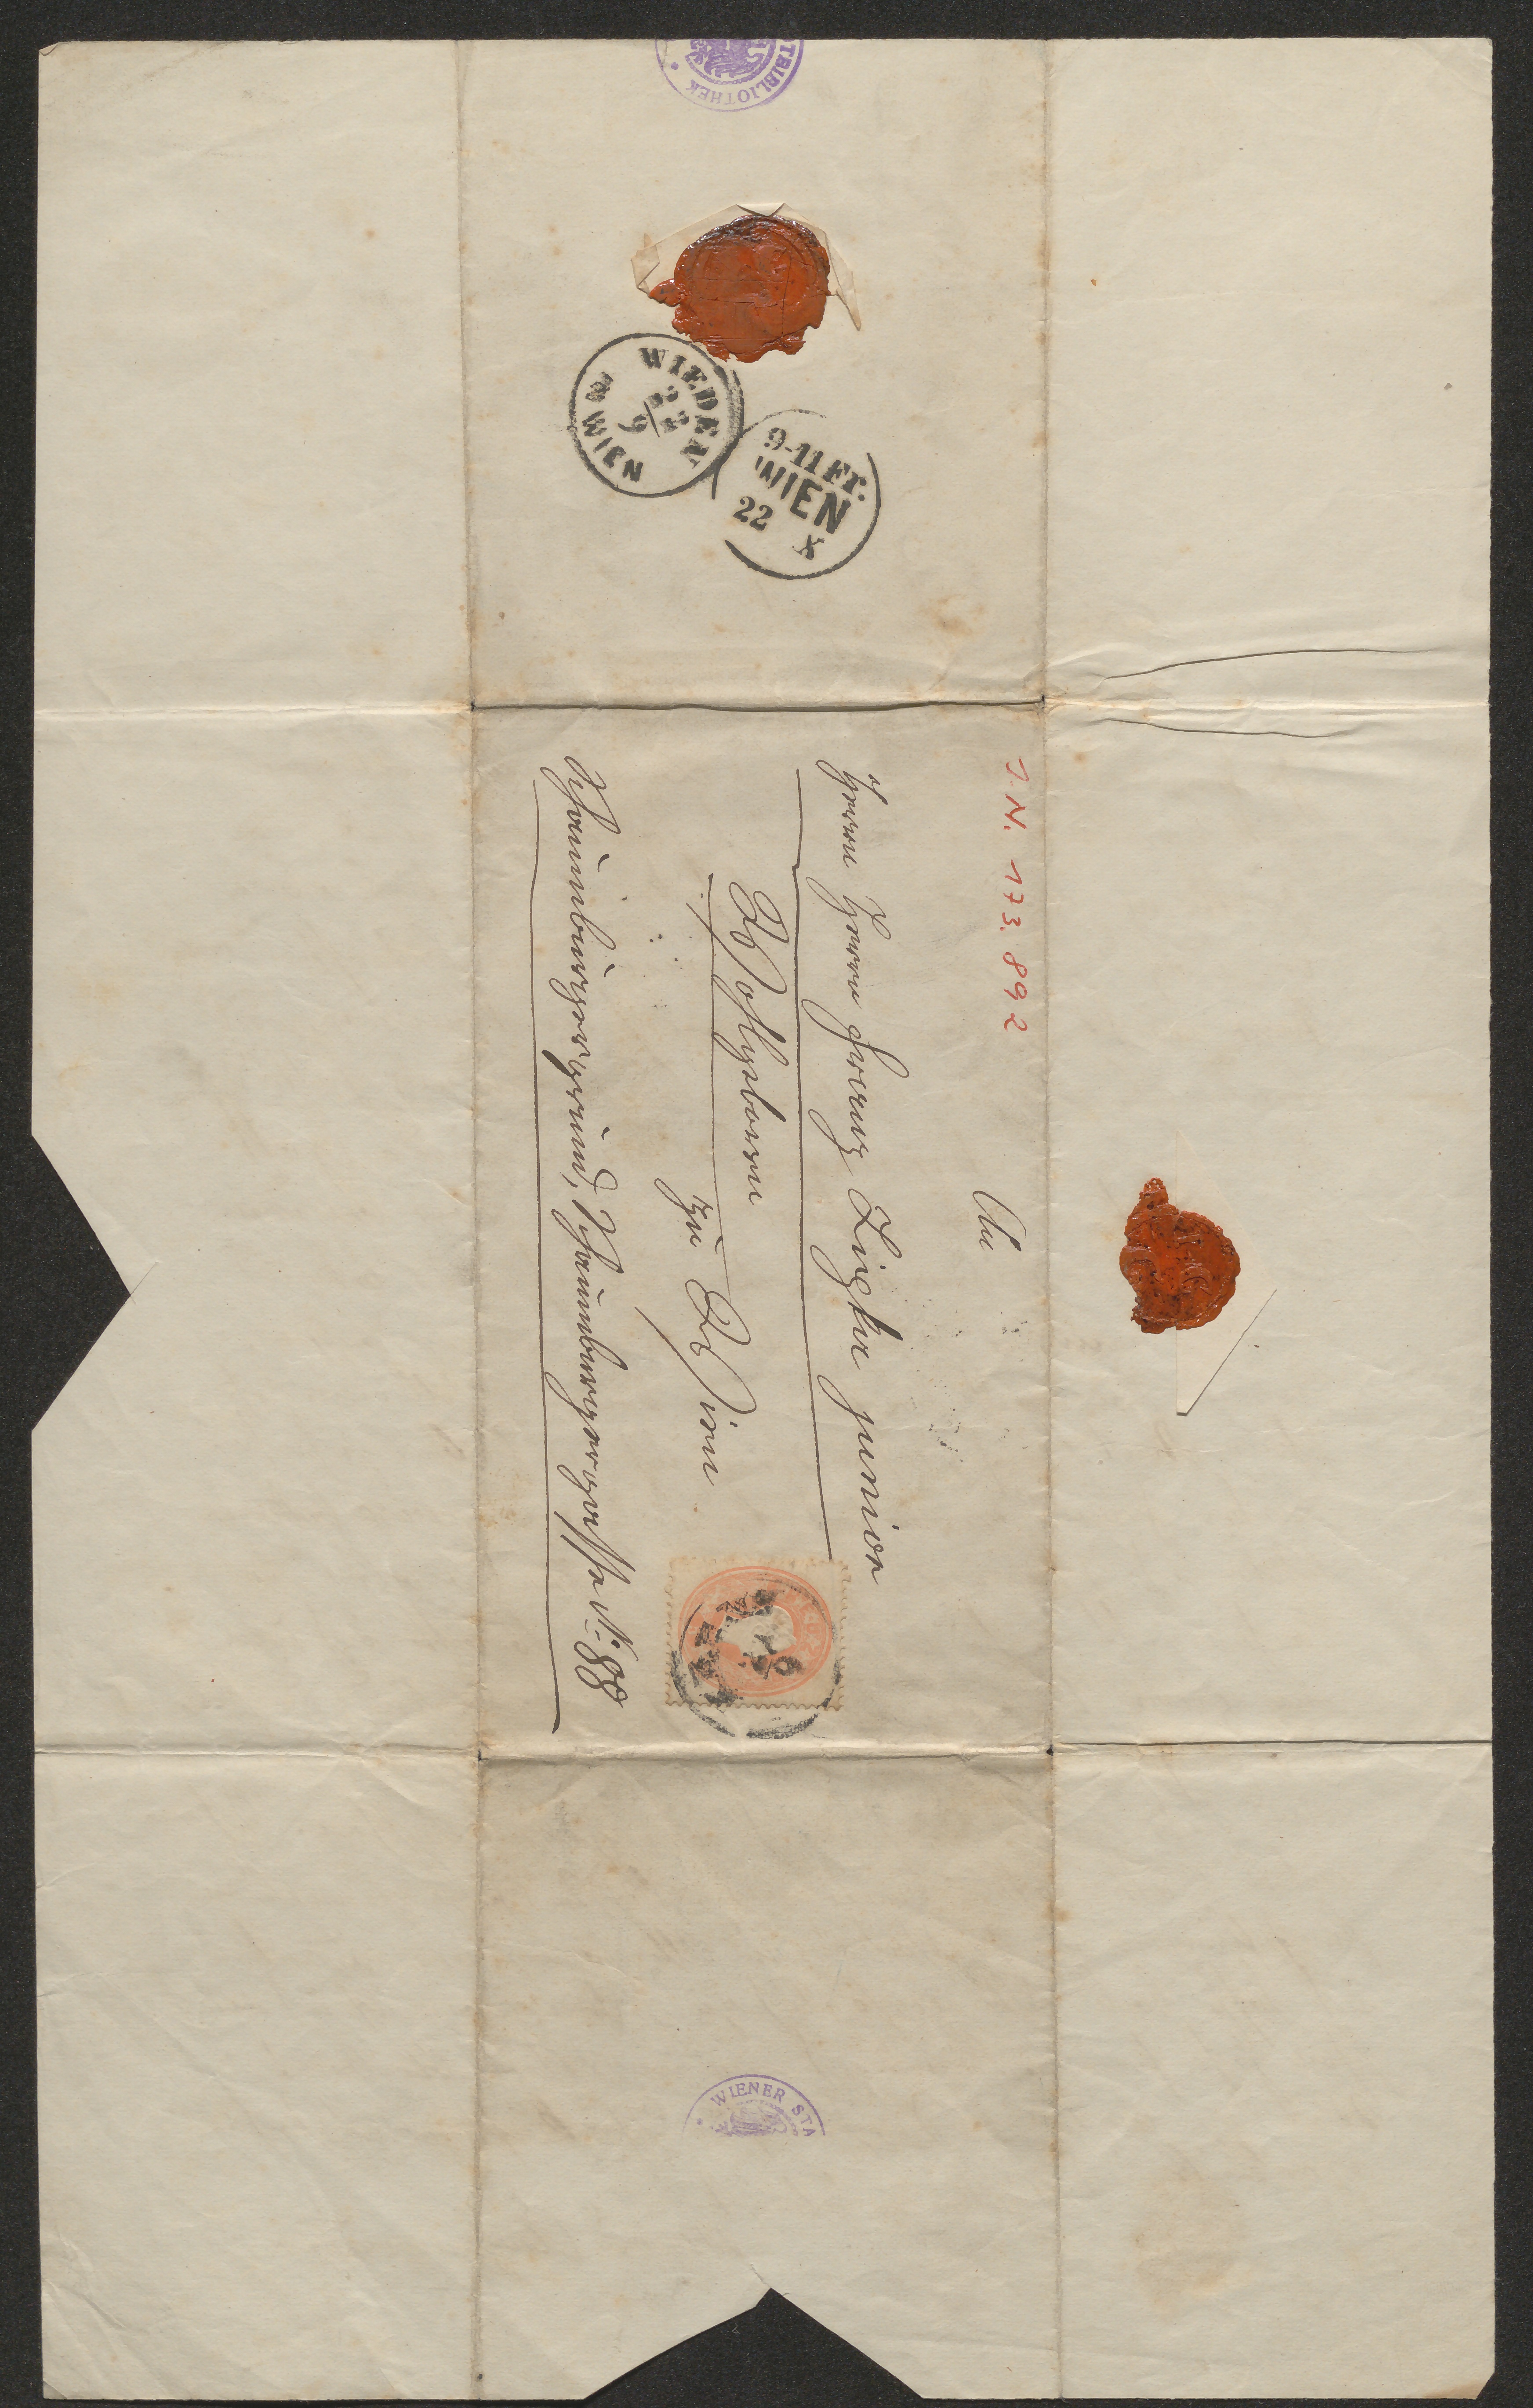 TBIBLIOTHEK
WIEDEN
22
9
WIEN
9-11 Fr.
WIEN
22 X
J.N. 173.892
An
Herrn Herrn Franz junior
Wohlgeborn
zu Wien
Schaumburgergrund, Schaumburgergasse No: 88
WIENER STA